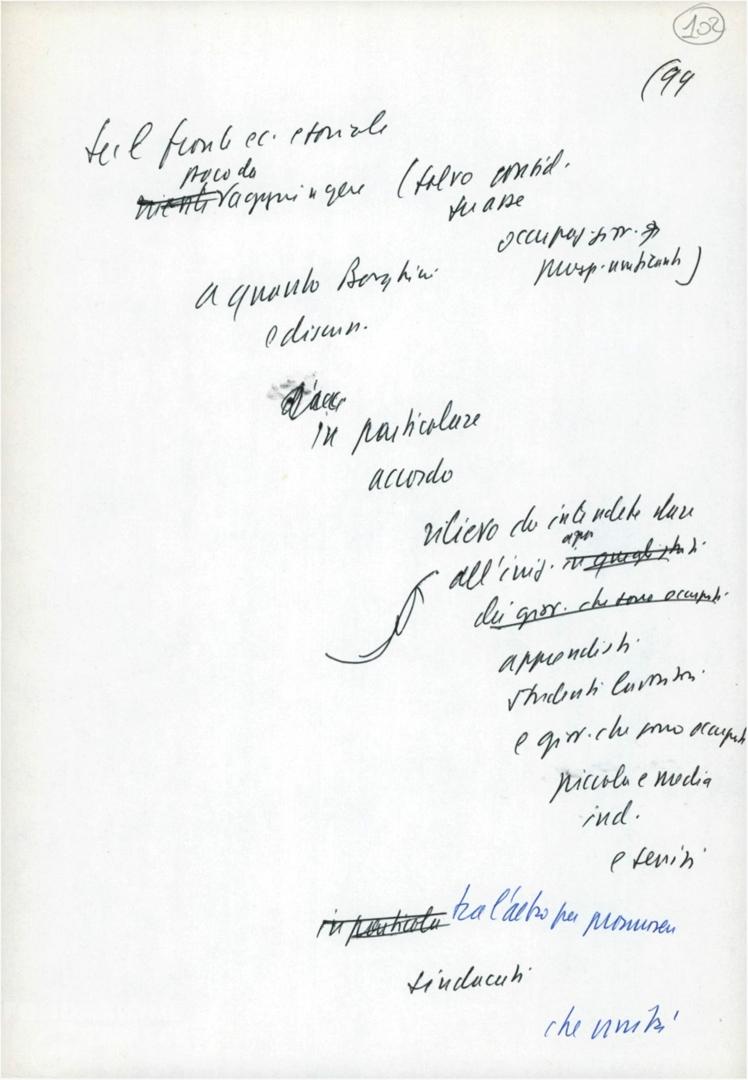 102
(99
sul fronte ec. e sociale
poco da
niente raggiungere (salvo consid.
su asse
occupaz. giov. e
prosp. unificanti)
a quanto Borghini
e discuss.
in particolare
accordo
rilievo che intendete dare
all'iniz. in quegli strati
dei giov. che sono occupati
apprendisti
studenti lavoratori
e giov. che sono occupati
piccola e media
ind.
e servizi
in particola tra l'altro per promuovere
sindacati
che unità